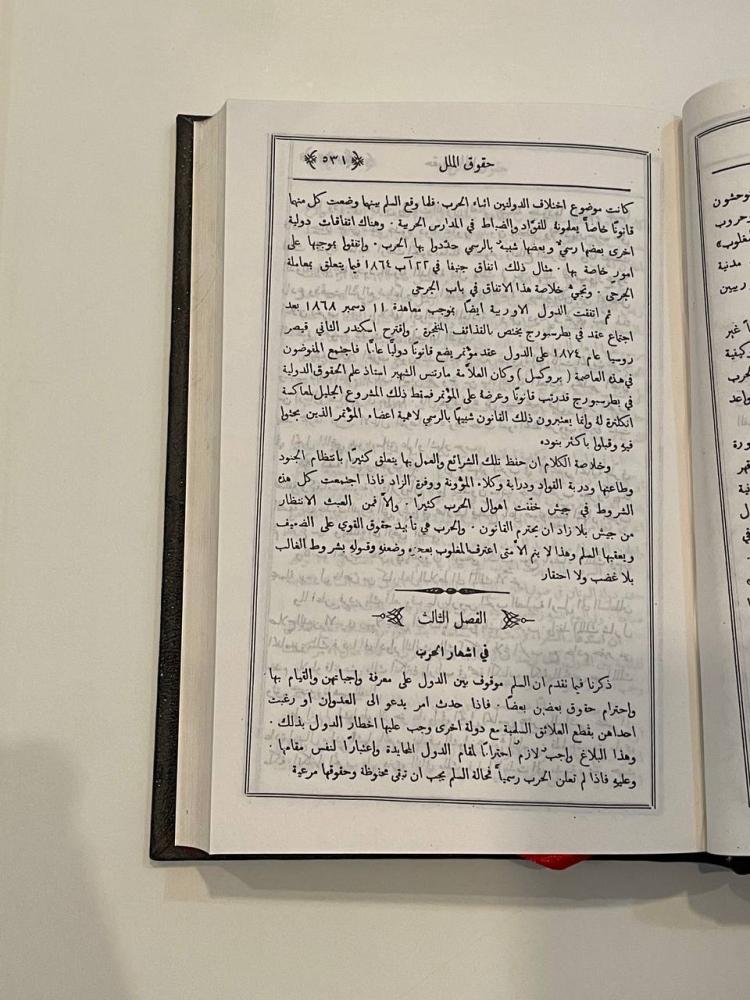 حقوق الملل ﴿٥٣١﴾
كانت موضوع اختلاف الدولتين اثناء الحرب . فلما وقع السلم بينها وضعت كل منها
قانونًا خاصًّا يعلمونهُ للقوَّاد والضباط في المدارس الحربية . وهناك اتفاقات دولية
اخرى بعضها رسميٌّ وبعضها شبيهٌ بالرسمي حدَّدوا بها الحرب . واتفقوا بموجبها على
امور خاصة بها . مثال ذلك اتفاق جنيفا في ٢٢ آب ١٨٦٤ فيما يتعلق بمعاملة
الجرحى . ونجيءُ خلاصة هذا الاتفاق في باب الجرحى
ثم اتفقت الدول الاوربية ايضًا بموجب معاهدة ١١ دسمبر ١٨٦٨ بعد
اجتماع عقد في بطرسبورج يختص بالقذائف المتفجرة . واقترح اسكندر الثاني قيصر
روسيا عام ١٨٧٤ على الدول عقد مؤتمر يضع قانونًا دوليًّا عامًّا فاجتمع المفوضون
في هذه العاصمة (بروكسل) وكان العلاَّمة مارتنس الشهير استاذ علم الحقوق الدولية
في بطرسبورج قد رتب قانونًا وعرضهُ على المؤتمر فسقط ذلك المشروع الجليل لمعاكسة
انكلترة لهُ وانما يعتبرون ذلك القانون شبيهًا بالرسمي لاهمية اعضاء المؤتمر الذين بحثوا
فيهِ وقبلوا باكثر بنودهِ
وخلاصة الكلام ان حفظ تلك الشرائع والعمل بها يتعلق كثيرًا بانتظام الجنود
وطاعتها ودربة القواد ودراية وكلاء المؤونة ووفرة الزاد فاذا اجتمعت كل هذه
الشروط في جيش خفَّت اهوال الحرب كثيرًا . والاَّ فمن العبث الانتظار
من جيش بلا زاد ان يحترم القانون . والحرب هي تأييد حقوق القوي على الضعيف
ويعقبها السلم وهذا لا يتم الاَّ متى اعترف المغلوب بعجزهِ وضعفهِ وقبولهِ بشروط الغالب
بلا غضب ولا احتقار
الفصل الثالث
في اشهار الحرب
ذكرنا فيما تقدم ان السلم موقوف بين الدول على معرفة واجباتهن والقيام بها
واحترام حقوق بعضهن بعضًا . فاذا حدث امر يدعو الى العدوان او رغبت
احداهن بقطع العلائق السلمية مع دولة اخرى وجب عليها اخطار الدول بذلك .
وهذا البلاغ واجبٌ لازمٌ احترامًا لمقام الدول المحايدة واعتبارًا لنفس مقامها .
وعليهِ فاذا لم تعلن الحرب رسميًّا فحالة السلم يجب ان تبقى محفوظة وحقوقها مرعية